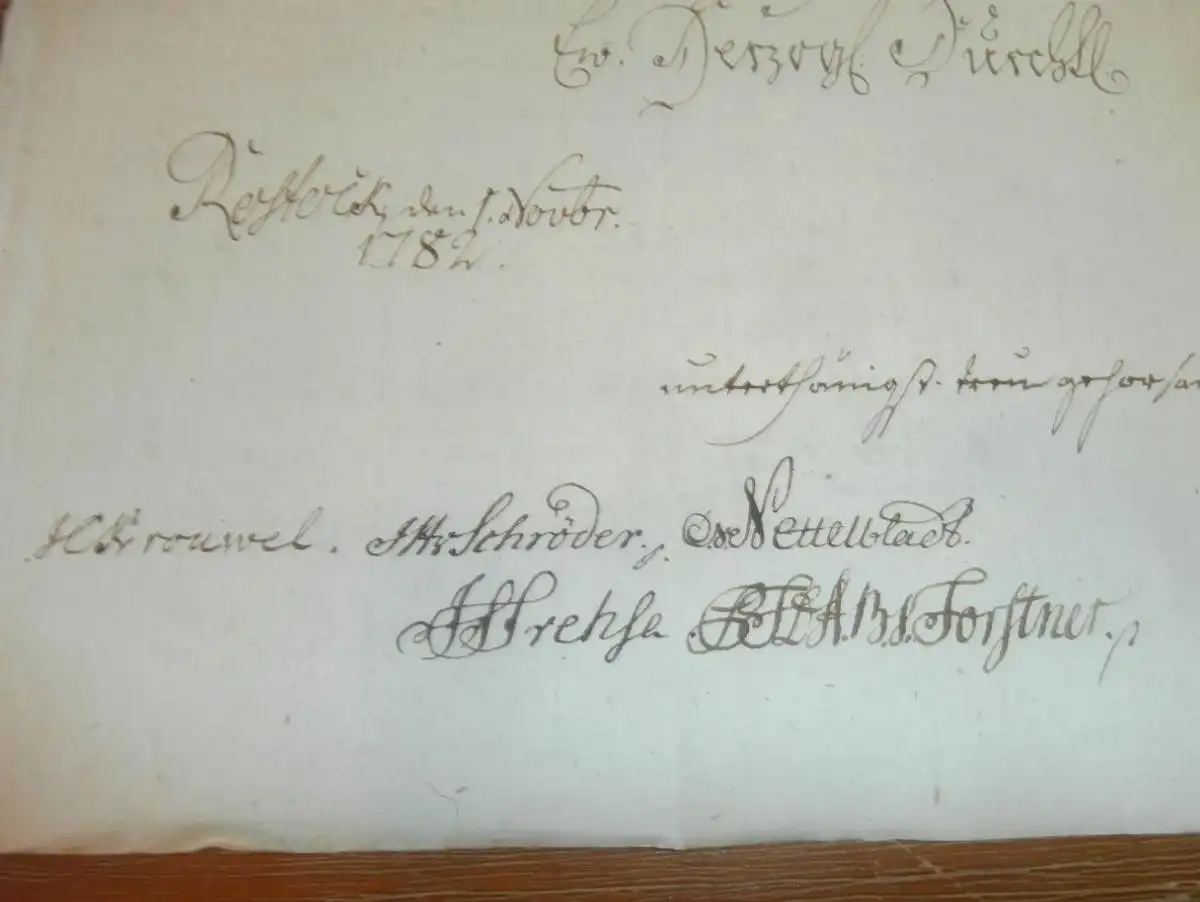 Ew. Herzogl. Durchl.
Rostock, den 1. Novbr.
1782.
unterthänigst treu gehorsa
Schröder. Nettelbladt.
Forstner.